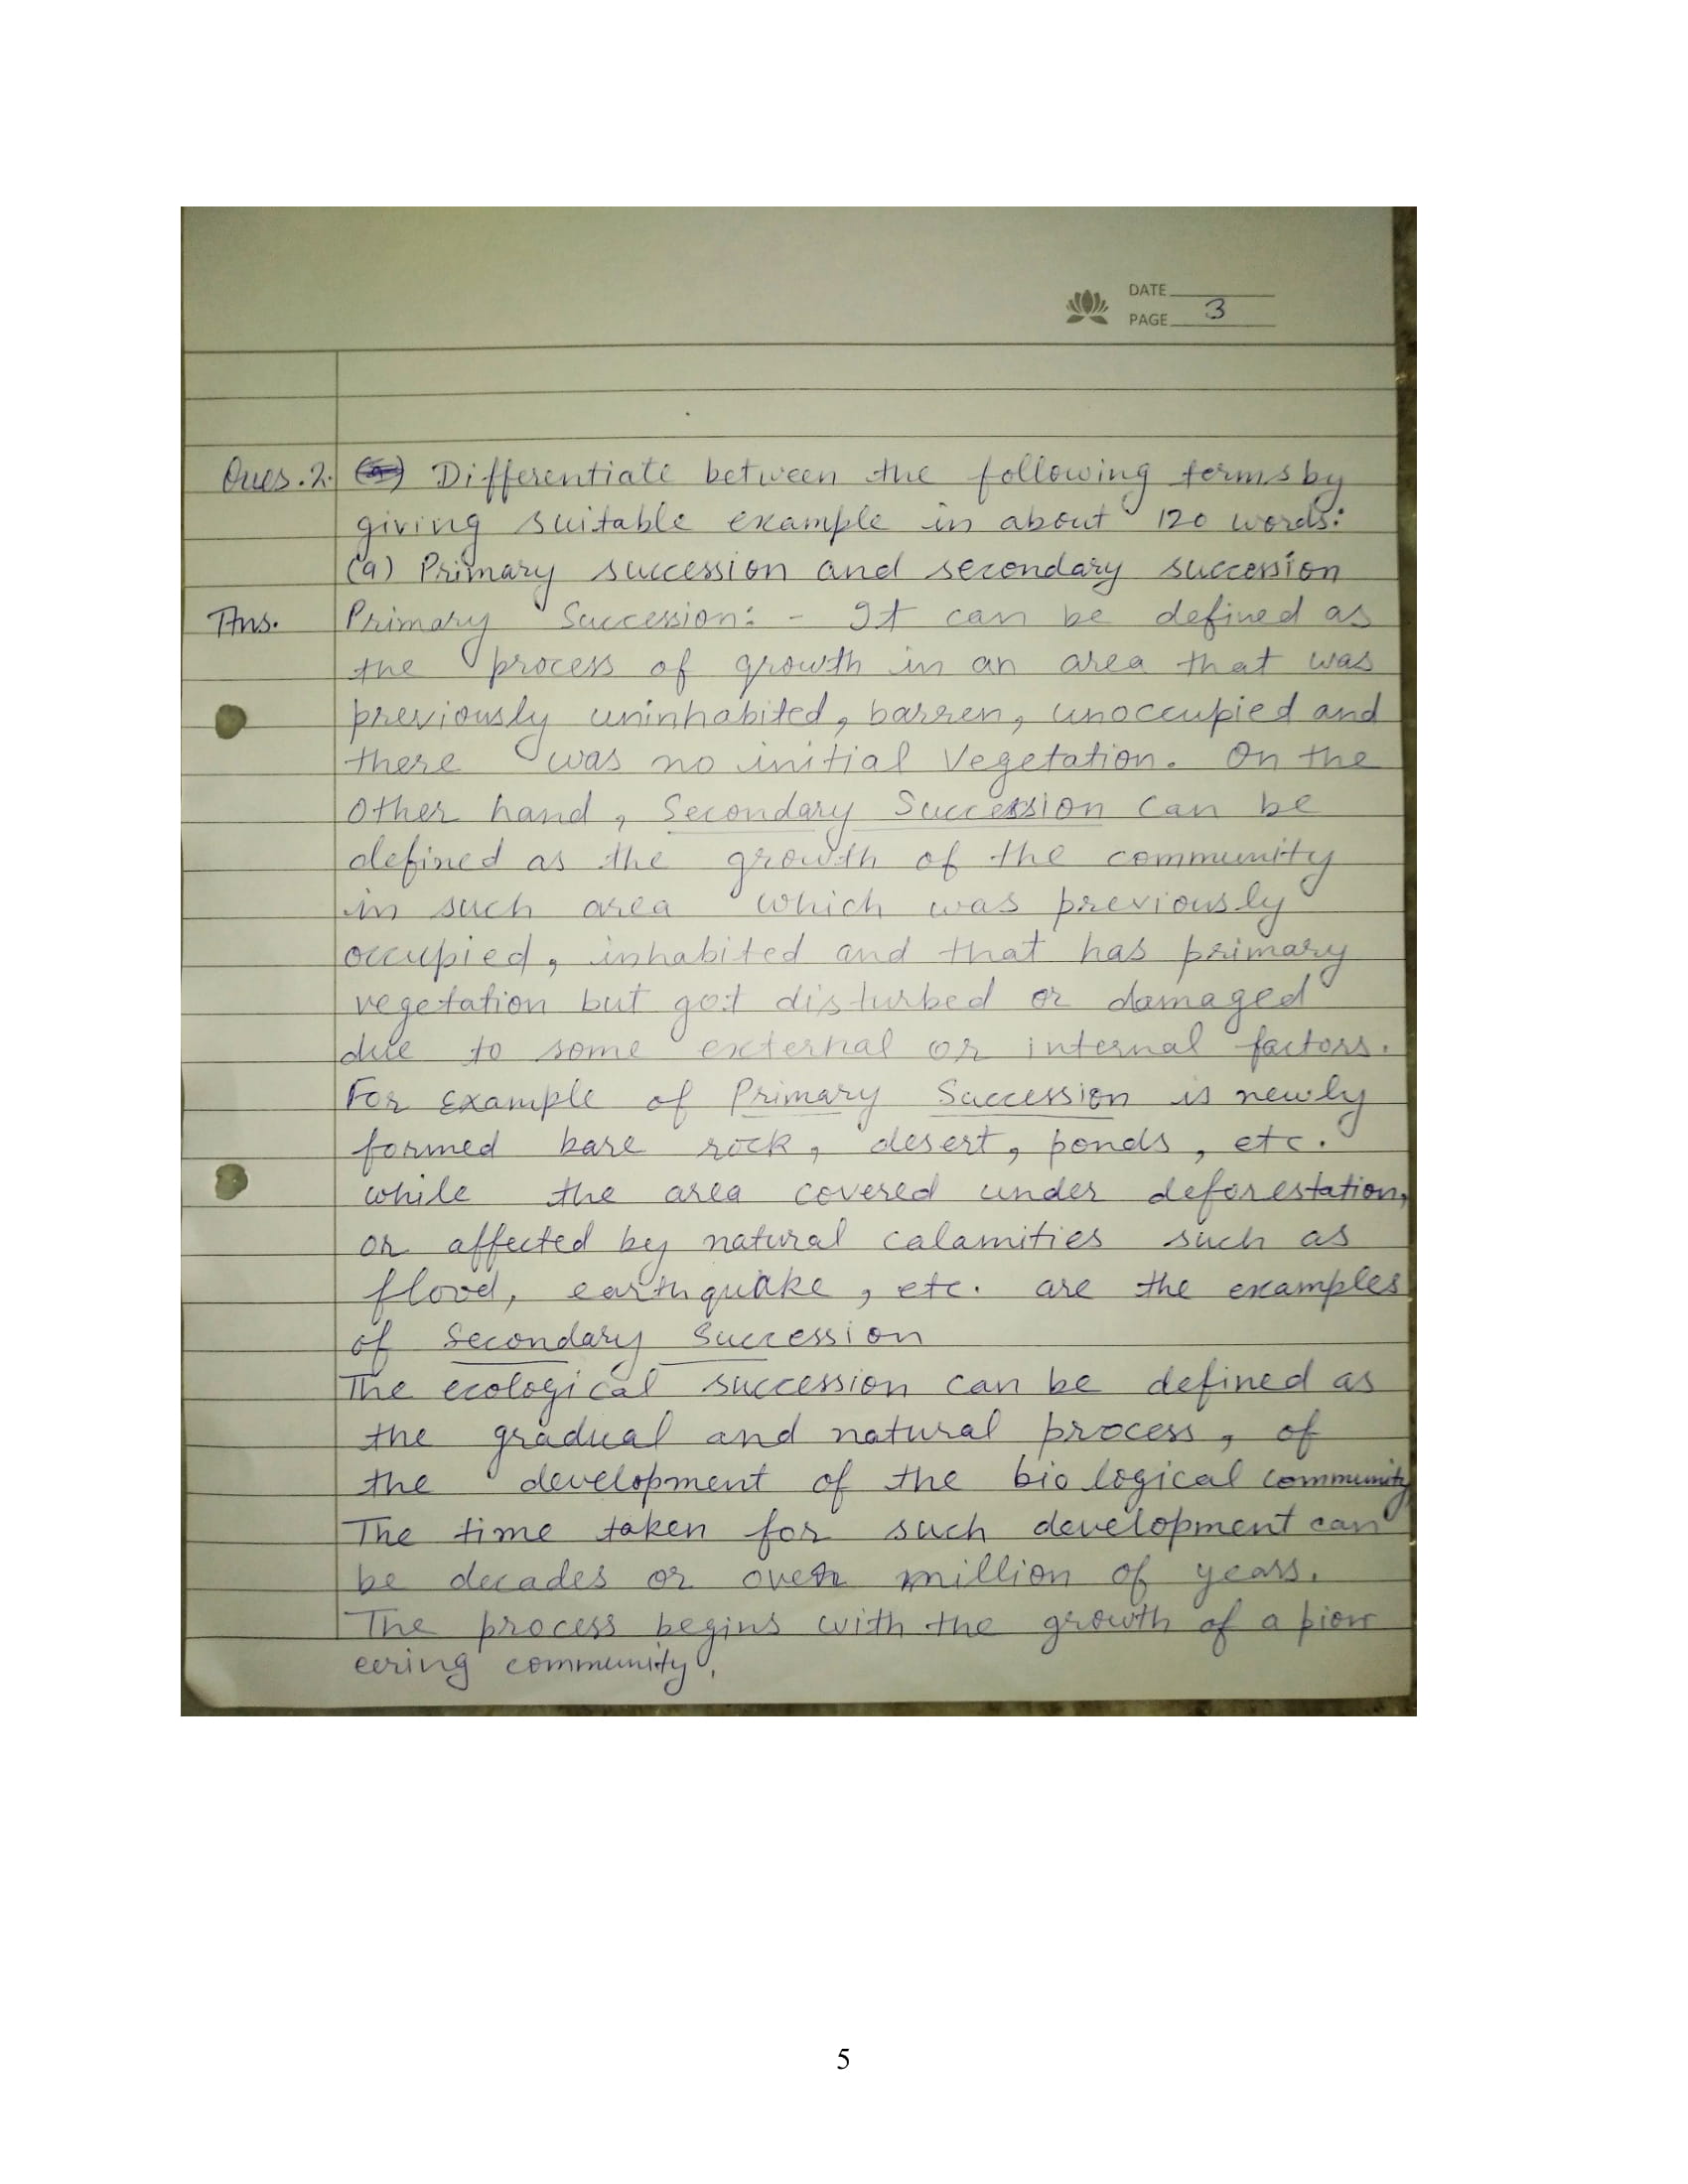 DATE
PAGE 3
Ques.2. (a) Differentiate between the following terms by
giving suitable example in about 120 words:
(a) Primary succession and secondary succession
Ans. Primary Succession: - It can be defined as
the process of growth in an area that was
previously uninhabited, barren, unoccupied and
there was no initial Vegetation. On the
other hand, Secondary Succession can be
defined as the growth of the community
in such area which was previously
occupied, inhabited and that has primary
vegetation but got disturbed or damaged
due to some external or internal factors.
For example of Primary Succession is newly
formed bare rock, desert, ponds, etc.
while the area covered under deforestation,
or affected by natural calamities such as
flood, earthquake, etc. are the examples
of Secondary Succession
The ecological succession can be defined as
the gradual and natural process, of
the development of the biological community
The time taken for such development can
be decades or over million of years.
The process begins with the growth of a pion
eering community.
5